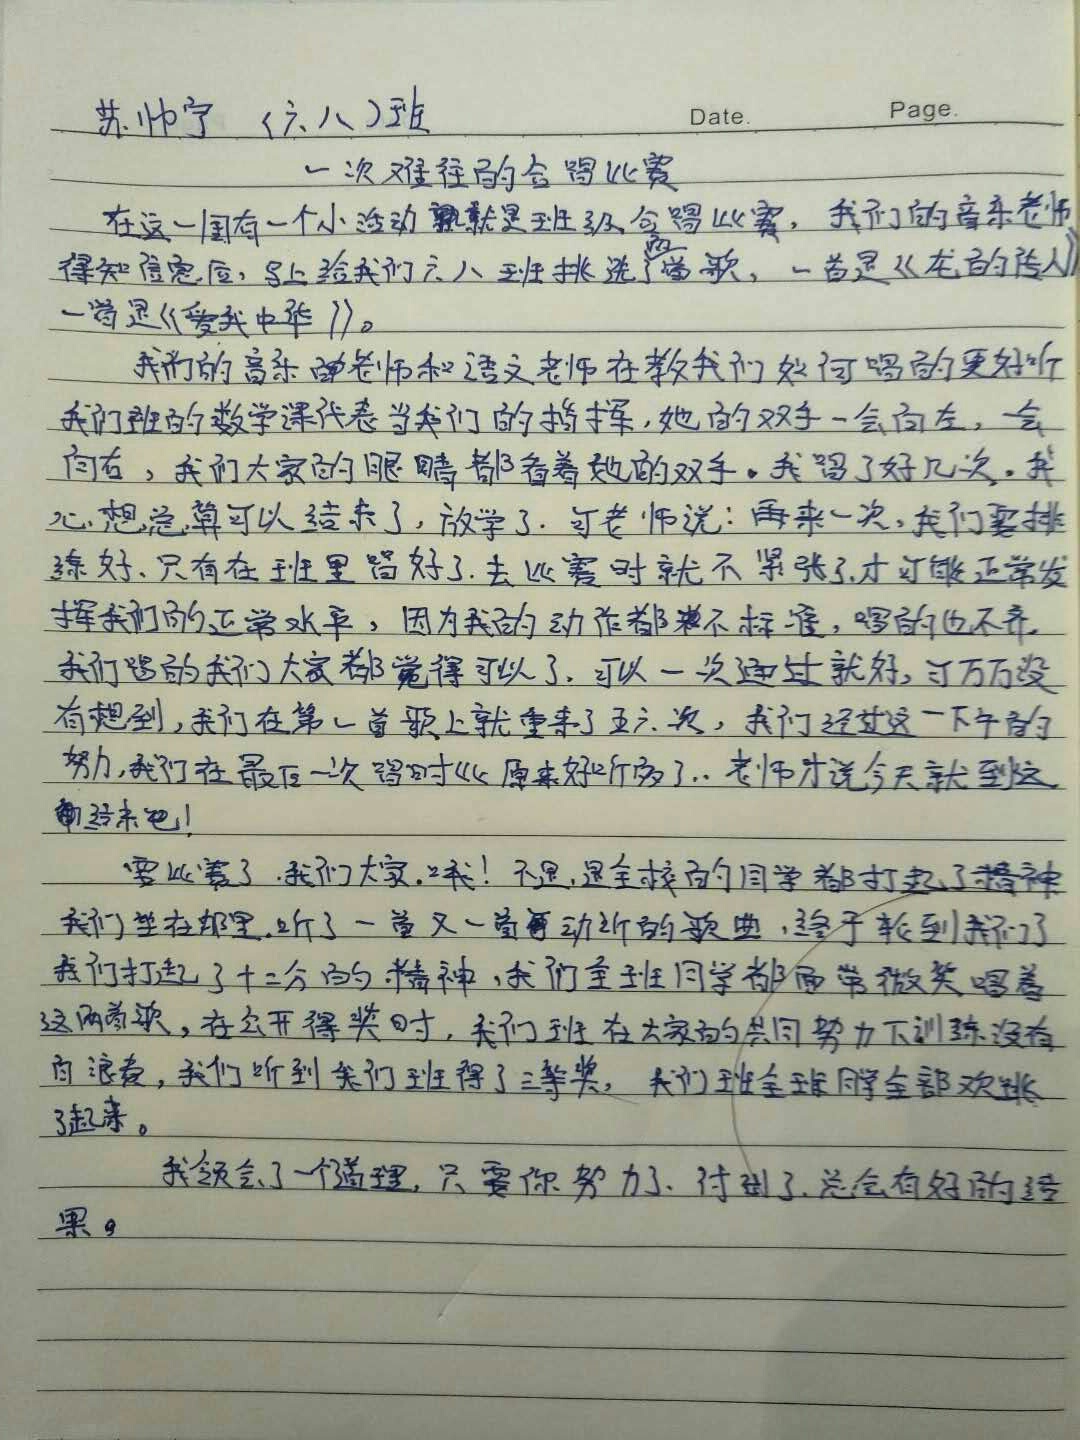 苏帅宁 （六八）班
Date. Page.
一次难往的合唱比赛
在这一周有一个小活动就是班级合唱比赛，我们的音乐老师
得知信息后，马上给我们六八班挑选了两首歌，一首是《龙的传人》
一首是《爱我中华》。
我们的音乐老师和语文老师在教我们如何唱的更好听
我们班的数学课代表当我们的指挥，她的双手一会向左，一会
向右，我们大家的眼睛都看着她的双手。我唱了好几次。我
心想总算可以结束了，放学了．可老师说：再来一次，我们要排
练好、只有在班里唱好了．去比赛时就不紧张了．才可能正常发
挥我们的正常水平，因为我的动作都不标准，唱的也不齐．
我们唱的我们大家都觉得可以了．可以一次通过就好，可万万没
有想到，我们在第一首歌上就重来了五六次，我们经过这一下午的
努力，我们在最后一次唱时比原来好听多了．．老师才说今天就到这
结束吧！
要比赛了．我们大家．哦！不是，是全校的同学都打起了精神
我们坐在那里．听了一首又一首动听的歌曲，终于轮到我们了
我们打起了十二分的精神，我们全班同学都面带微笑唱着
这两首歌，在公开得奖时，我们班在大家的共同努力下训练没有
白浪费，我们听到我们班得了三等奖，我们班全班同学全部欢跳
了起来。
我领会了一个道理，只要你努力了、付到了．总会有好的结
果。